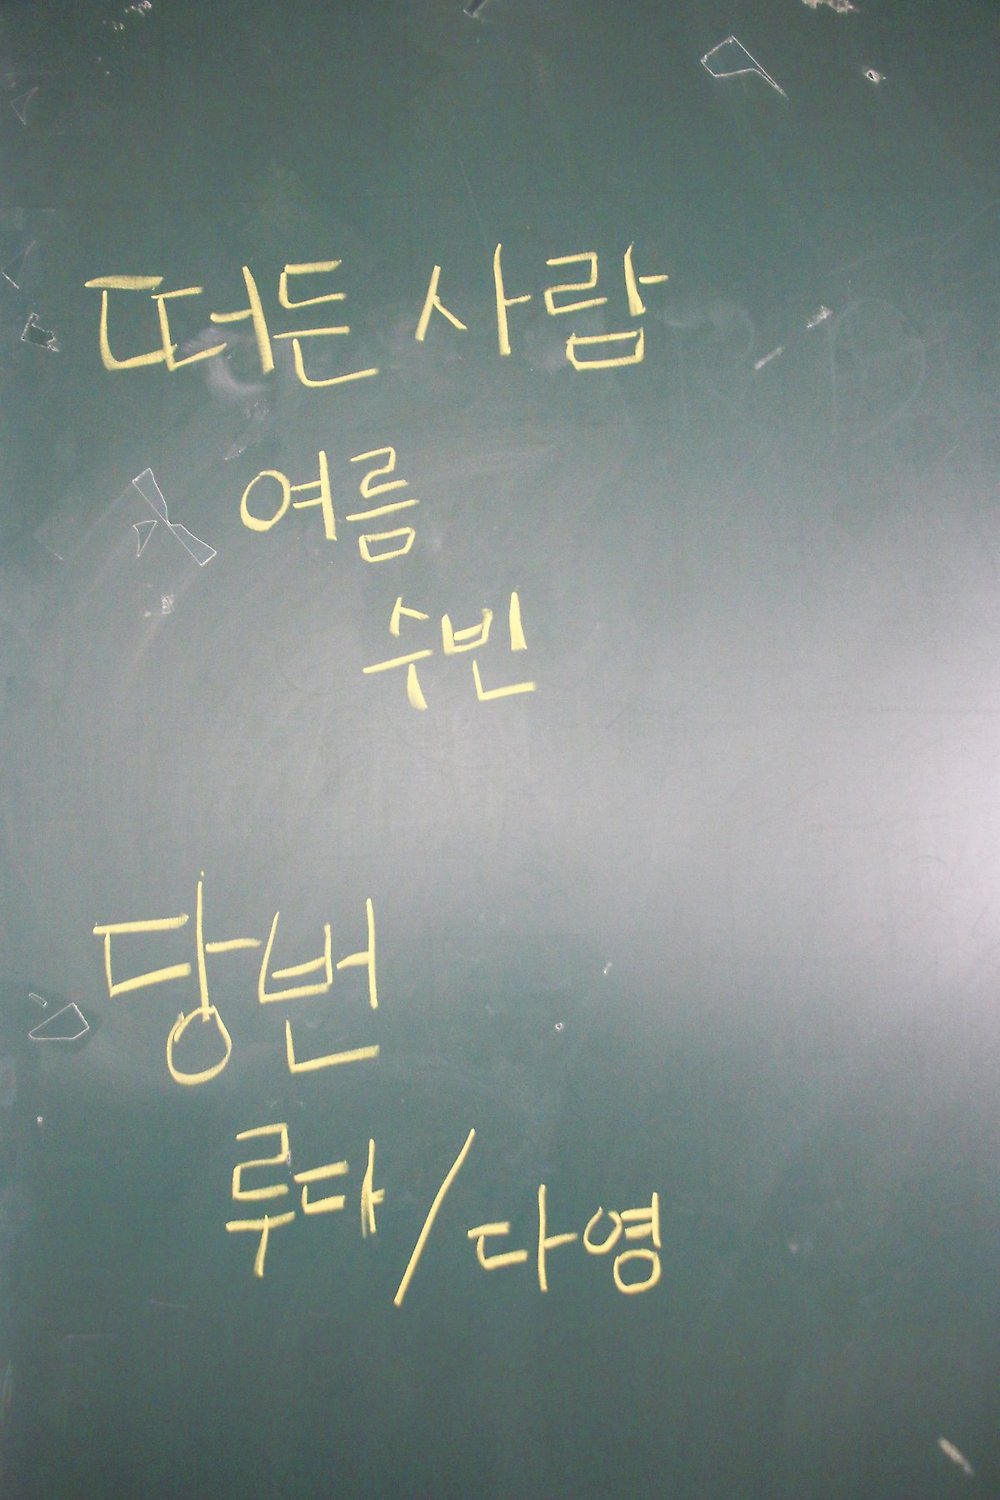 떠든 사람
여름
수빈
당번
루다/다영